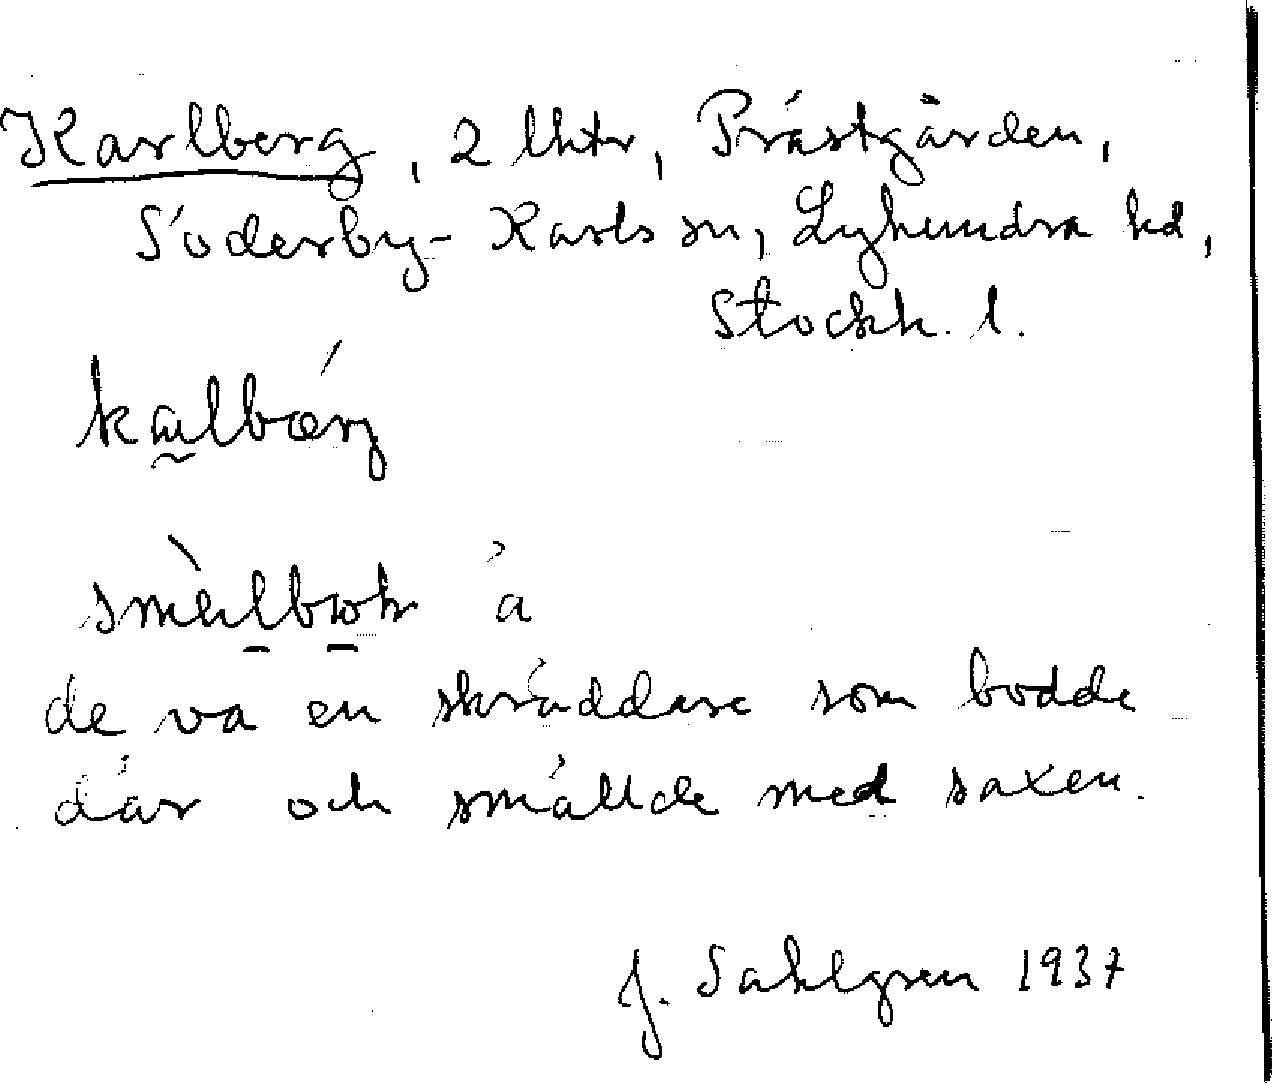 Karlberg, 2 lhtr, Prästgården,
Söderby-Karls sn, Lyhundra hd,
Stockh. l.
de va en skräddare som bodde
där och smällde med saxen.
J. Sahlgren 1937